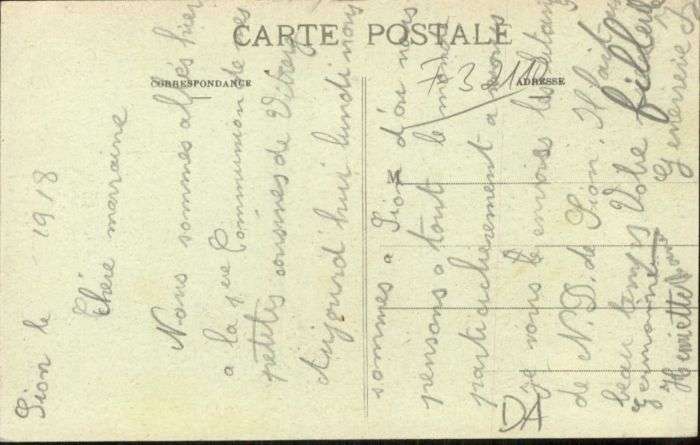 CARTE POSTALE
CORRESPONDANCE
ADRESSE
M
73211
DA
Sion le 1918
Chère marraine
Nous sommes allées hier
a la 1ère Communion de nos
petites cousines de
Aujourd'hui lundi nous
sommes a Sion d'ou nous
pensons a tout le monde
particulièrement a vous
je vous envoies les
de N.D. de Sion. Il fait
beau temps Votre filleule
Germaine
Henriette